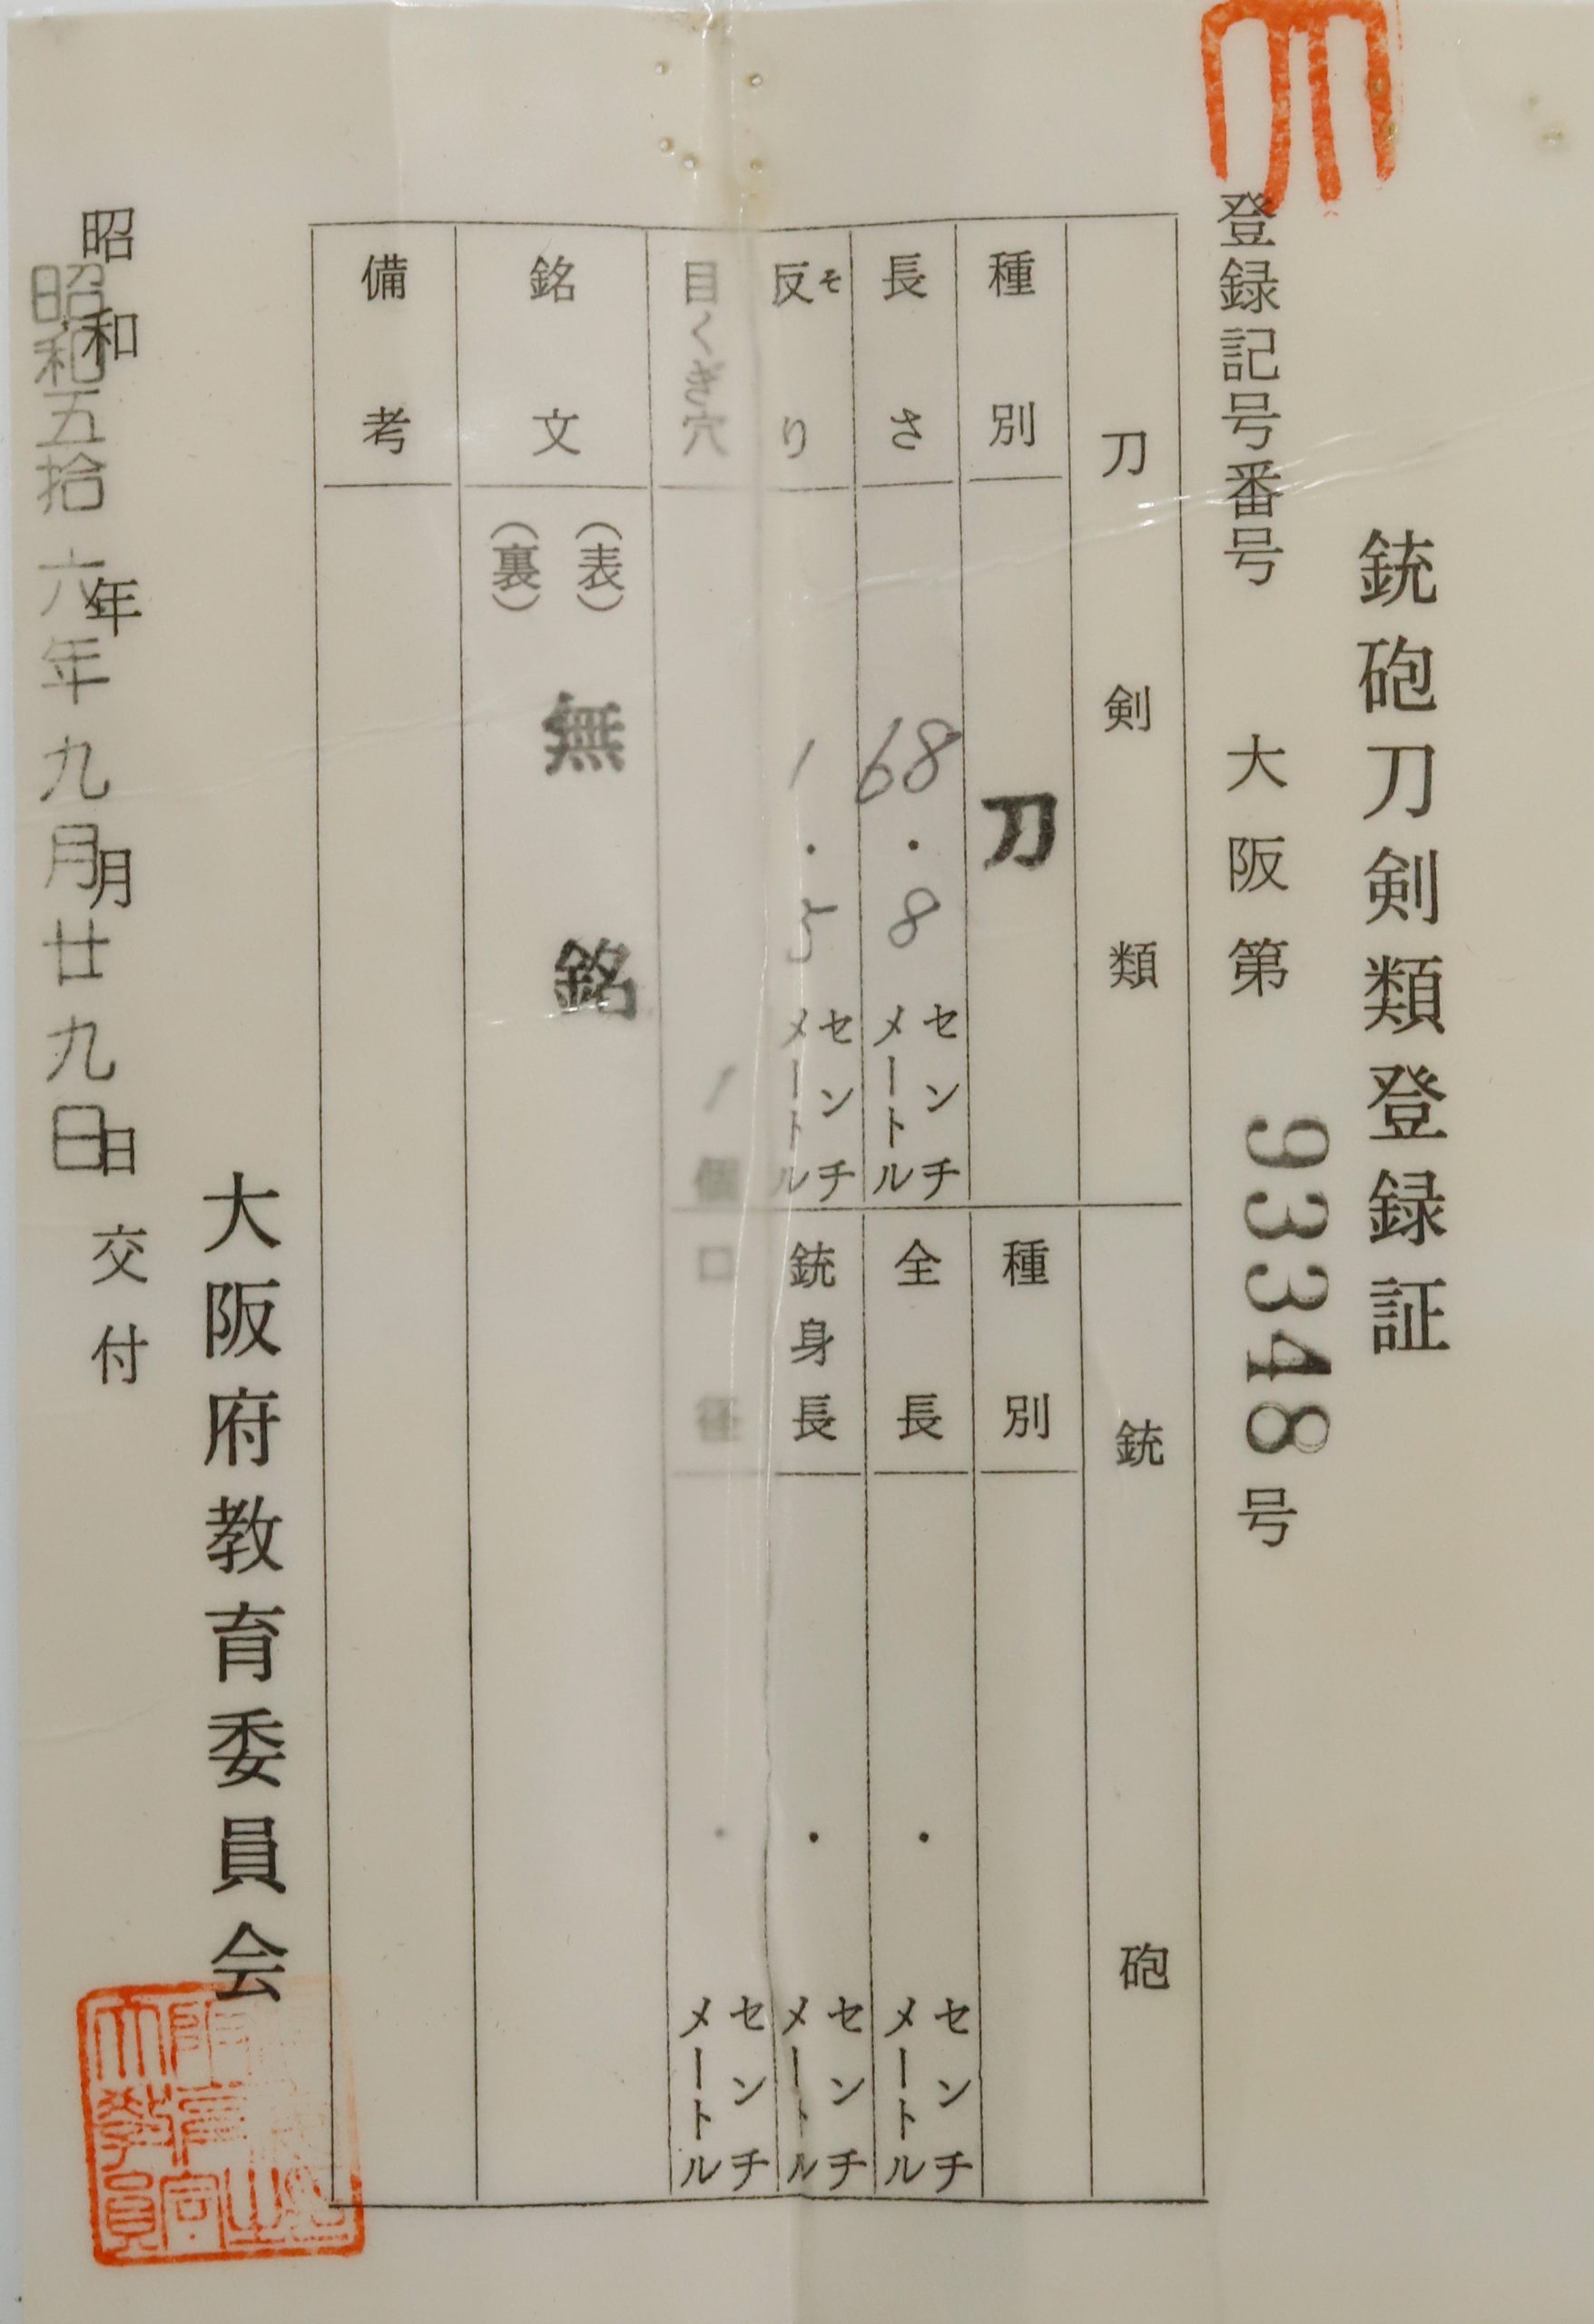 銃砲刀剣類登録証
登録記号番号 大阪第 93348 号
刀剣類
種別 刀
長さ 68.8 センチメートル
反り そ 1.5 センチメートル
目くぎ穴 1 個
銘文 (表) 無銘
(裏)
備考
銃砲
種別
全長 . センチメートル
銃身長 . センチメートル
口径 . センチメートル
大阪府教育委員会
昭和 年 月 日 交付
昭和五拾六年九月廿九日